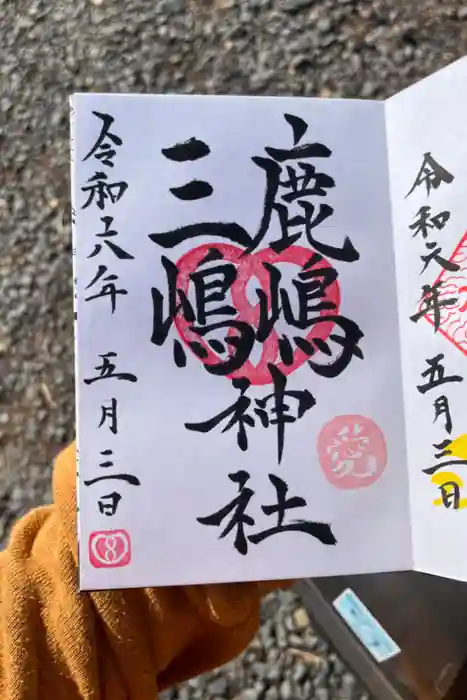 鹿嶋
三嶋
神社
愛
令和六年 五月三日
令和六年 五月三日